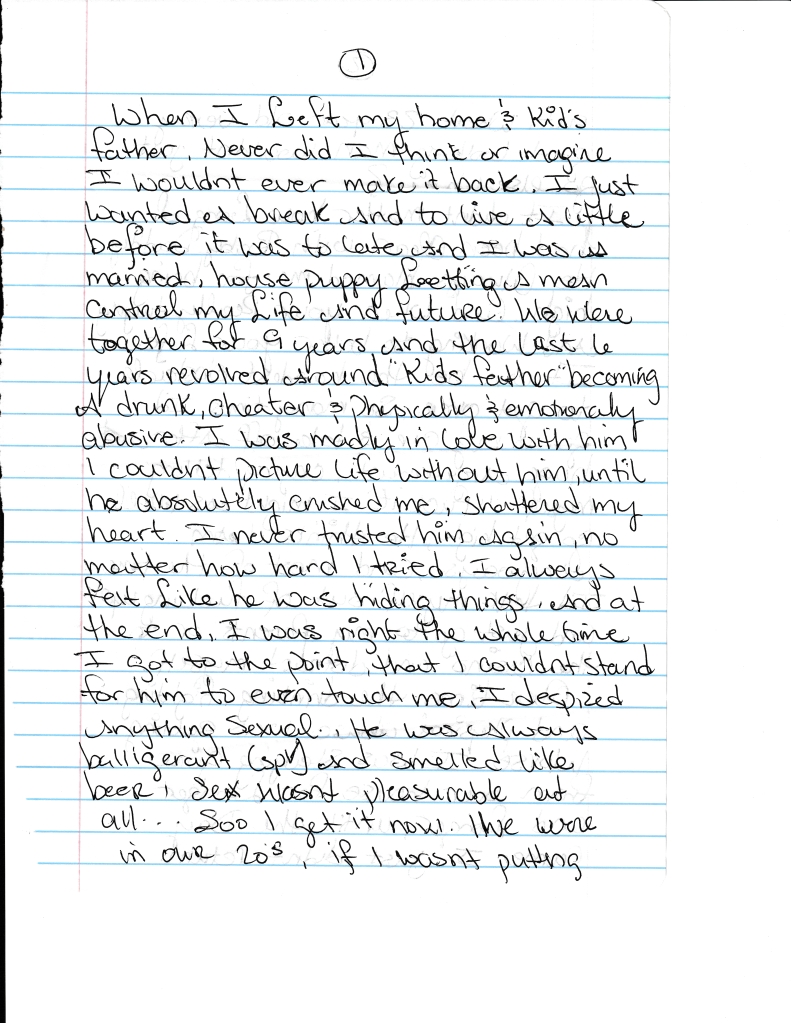 1
When I left my home & Kid's
father. Never did I think or imagine
I wouldnt ever make it back. I just
wanted a break and to live a little
before it was to late and I was
married, house puppy Letting a man
Control my Life and future. We were
together for 9 years and the last 6
years revolved around "Kids father" becoming
A drunk, cheater & physically & emotionaly
abusive. I was madly in love with him
I couldnt picture life without him, until
he absolutely crushed me, shattered my
heart. I never trusted him again, no
matter how hard I tried. I always
felt like he was hiding things. and at
the end, I was right the whole time
I got to the point, that I couldnt stand
for him to even touch me, I despized
anything Sexual.. He was always
balligerant (spl) and smelled like
beer, Sex wasnt pleasurable at
all... Soo I get it now. We were
in our 20s, if I wasnt putting